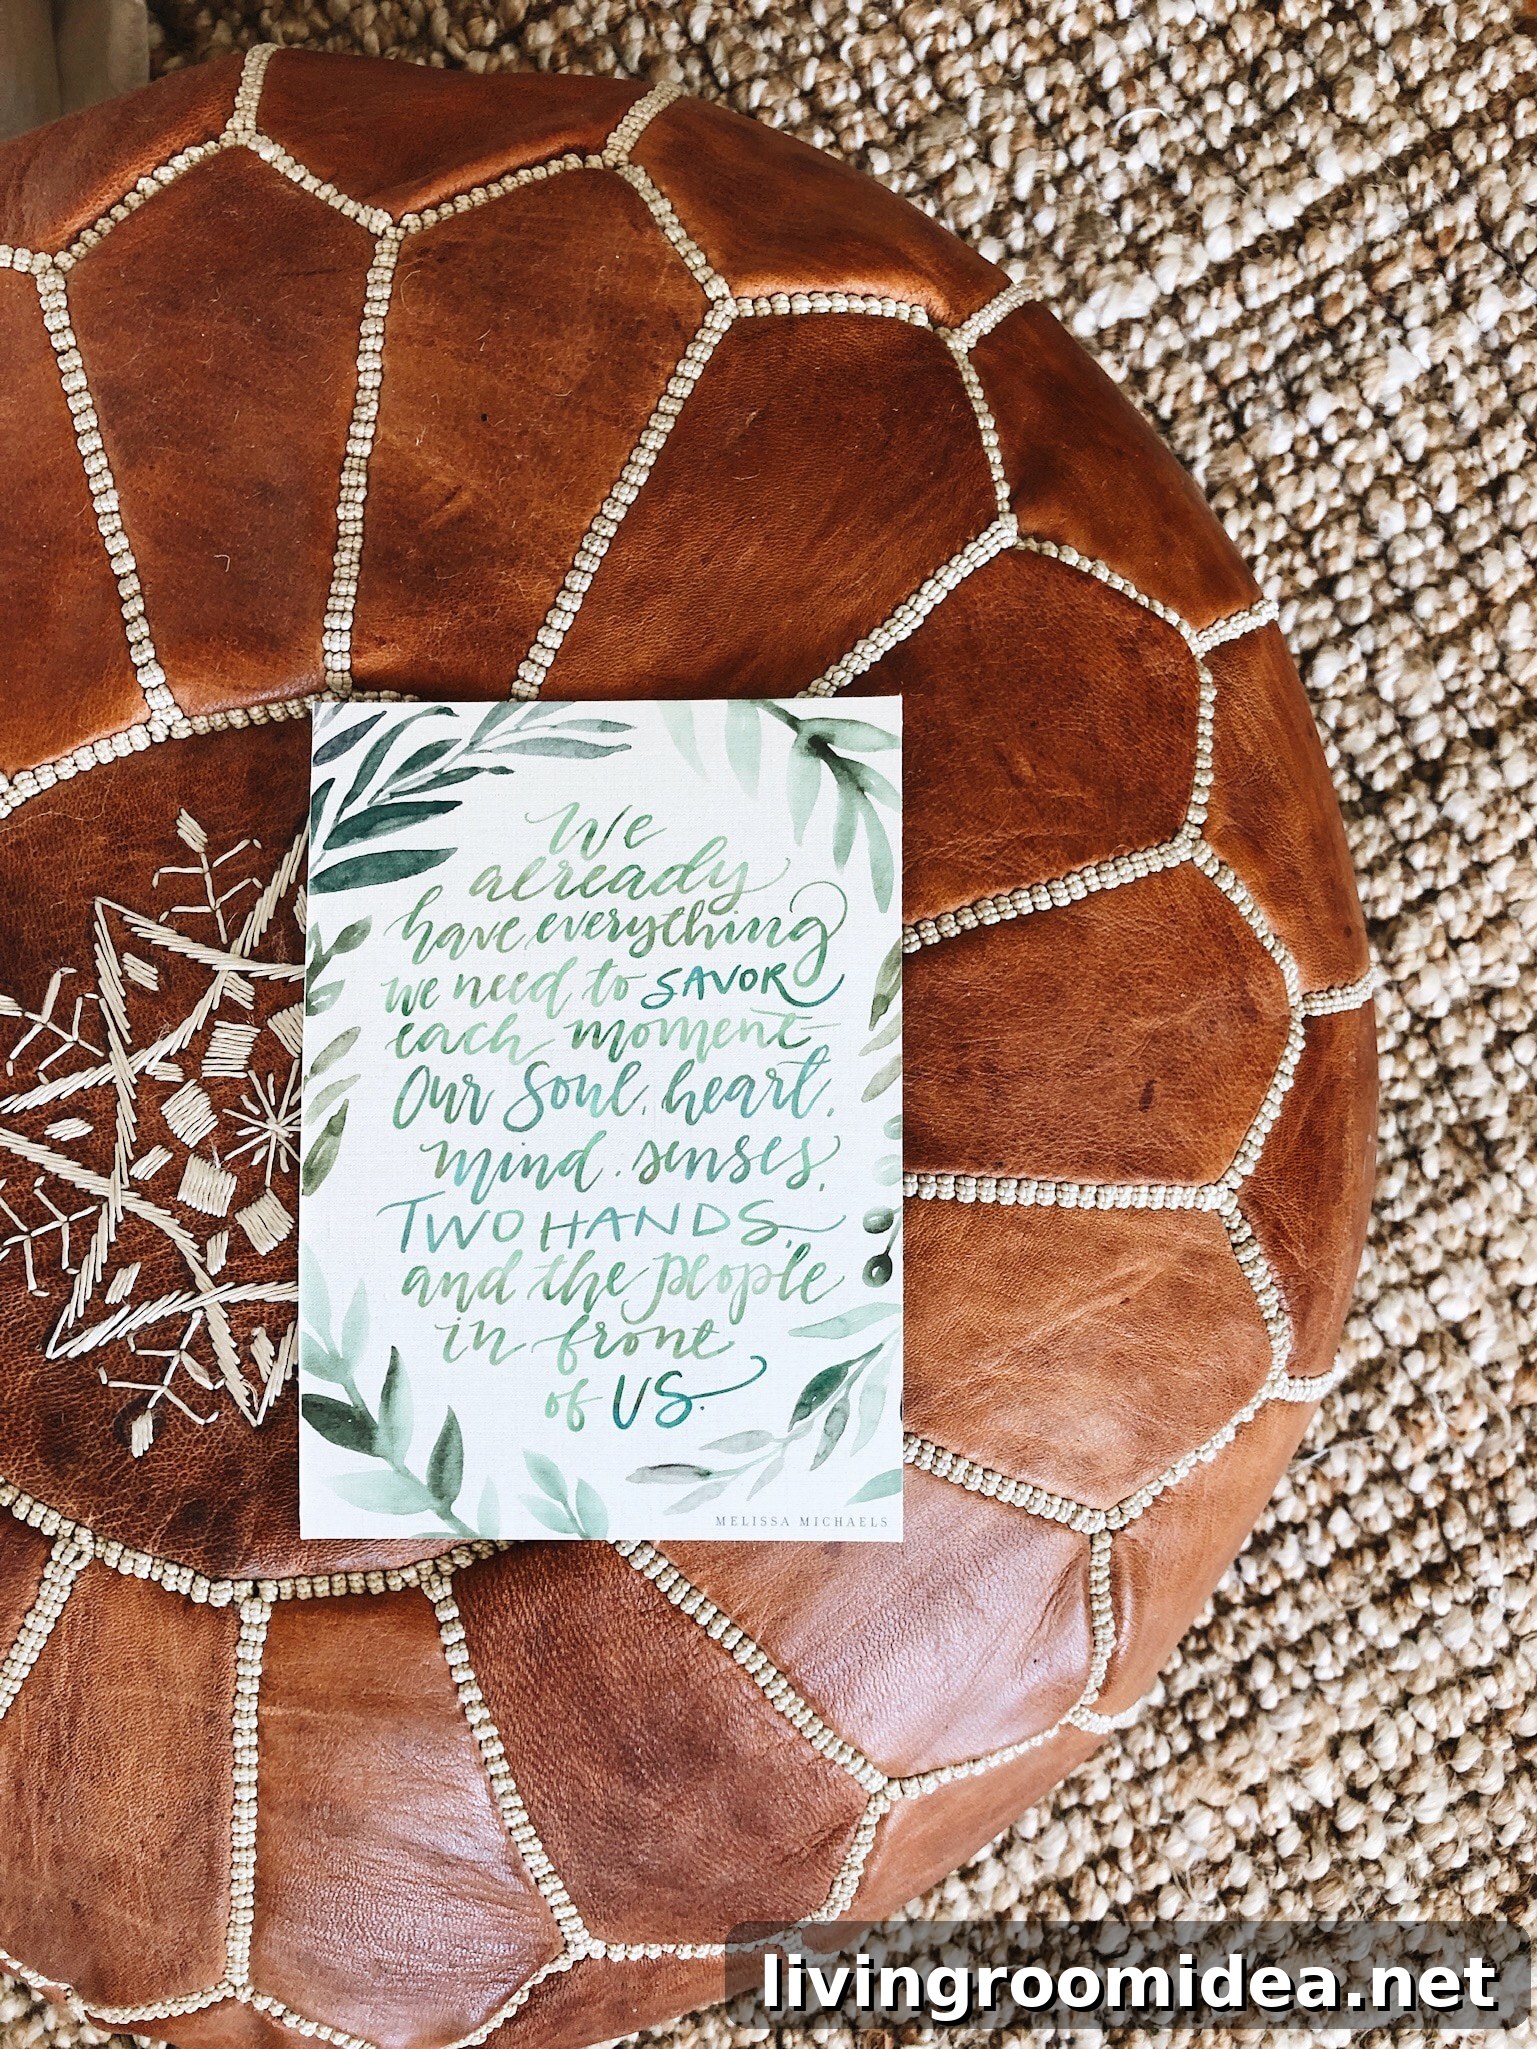 We
already
have everything
we need to SAVOR
each moment-
Our Soul, heart,
mind, senses,
TWO HANDS,
and the people
in front
of US.
MELISSA MICHAELS
livingroomidea.net